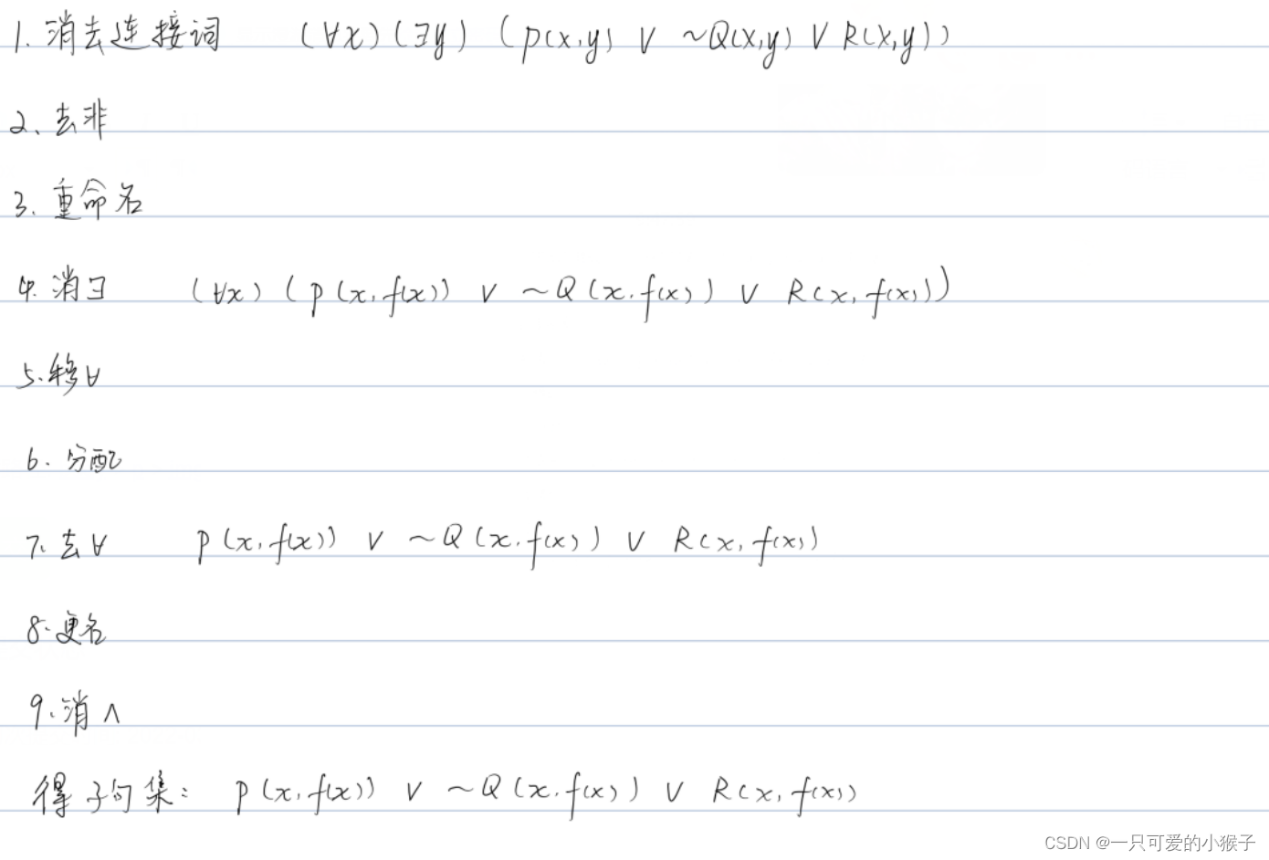 1. 消去连接词 (∀x)(∃y) (P(x,y) ∨ ~Q(x,y) ∨ R(x,y))
2. 去非
3. 重命名
4. 消∃ (∀x) (P(x,f(x)) ∨ ~Q(x.f(x)) ∨ R(x,f(x)))
5.移∀
6. 分配
7. 去∀ P(x,f(x)) ∨ ~Q(x.f(x)) ∨ R(x,f(x))
8.更名
9.消∧
得子句集: P(x,f(x)) ∨ ~Q(x.f(x)) ∨ R(x,f(x))
CSDN @一只可爱的小猴子